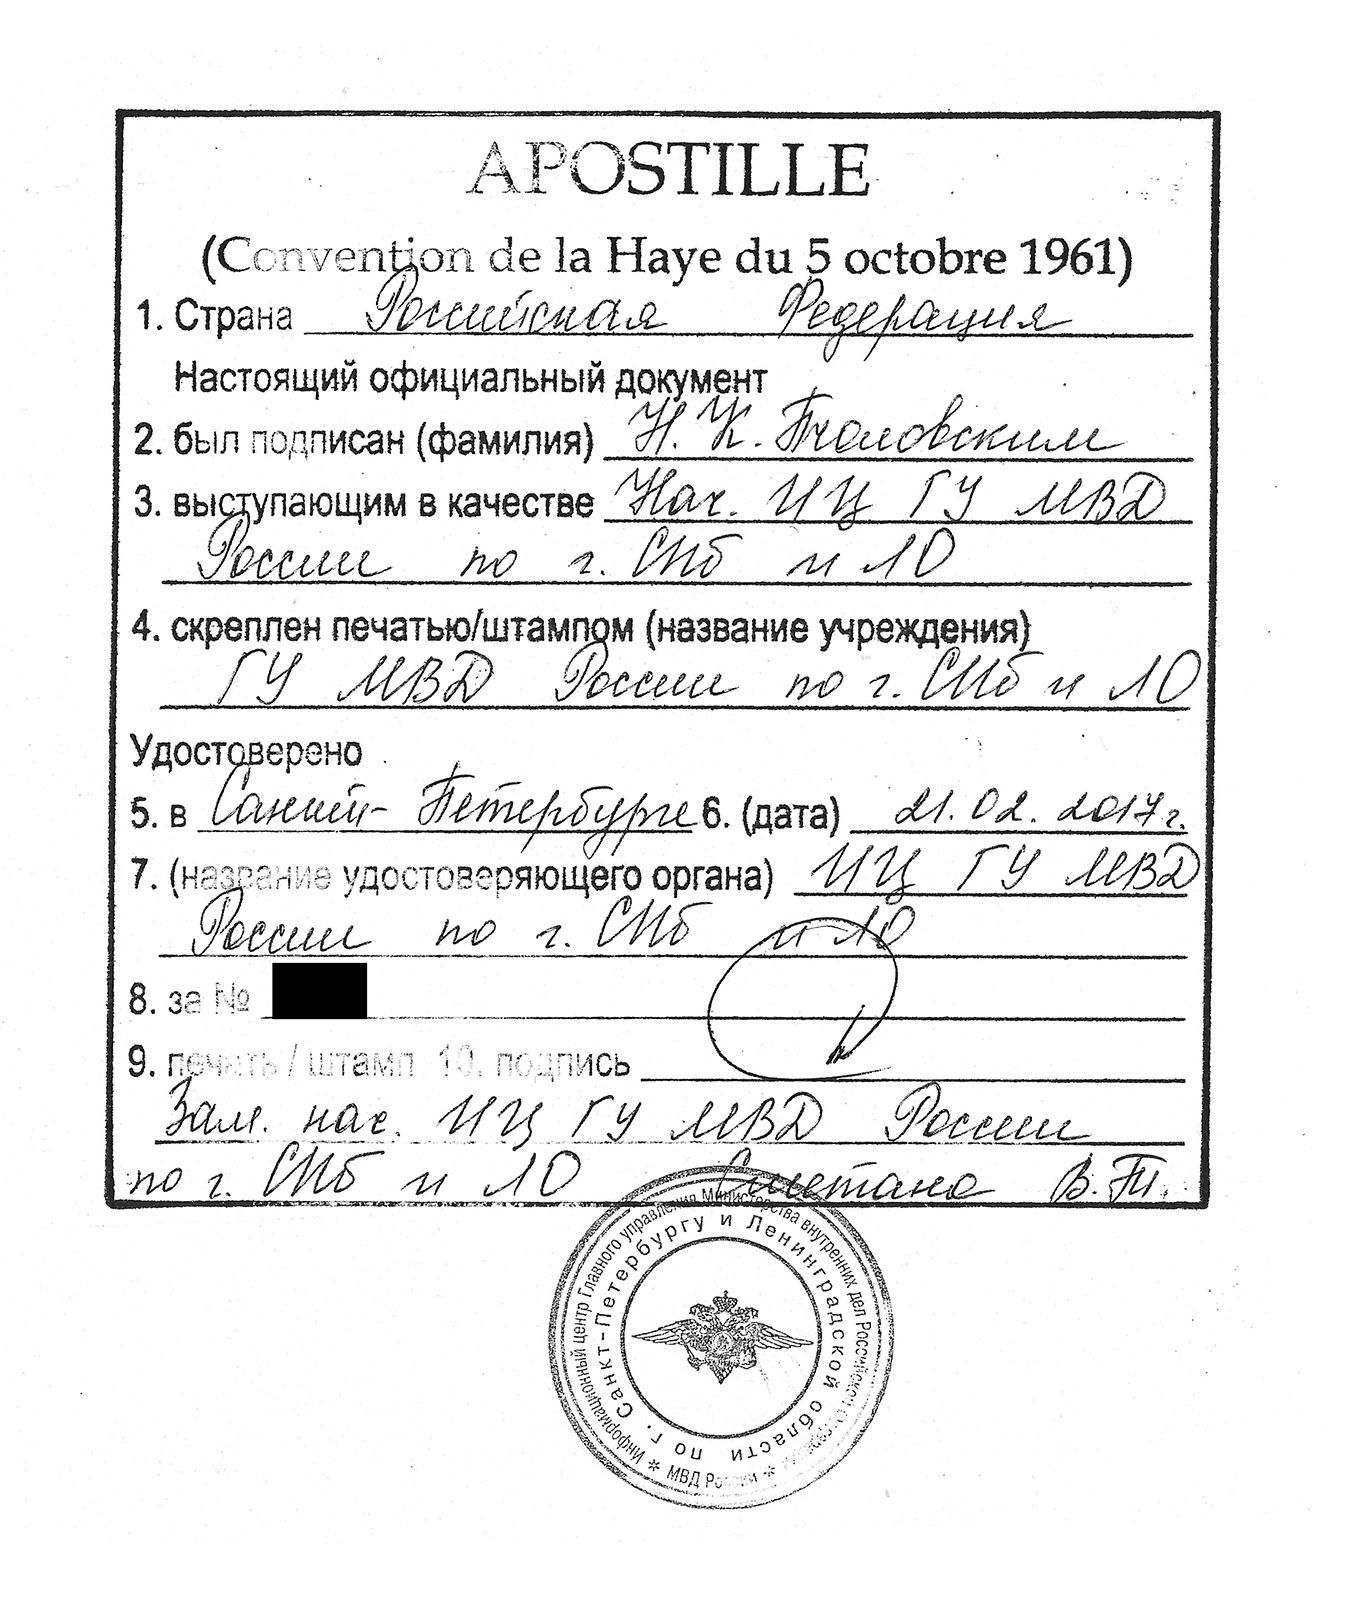 APOSTILLE
(Convention de la Haye du 5 octobre 1961)
1. Страна Российская Федерация
Настоящий официальный документ
2. был подписан (фамилия) Н. К.
3. выступающим в качестве Нач. ИЦ ГУ МВД
России по г. СПб и ЛО
4. скреплен печатью/штампом (название учреждения)
ГУ МВД России по г. СПб и ЛО
Удостоверено
5. в Санкт-Петербурге 6. (дата) 21.02.2017г.
7. (название удостоверяющего органа) ИЦ ГУ МВД
России по г. СПб и ЛО
8. за №
9. печать / штамп 10. подпись
Зам. нач. ИЦ ГУ МВД России
по г. СПб и ЛО Сметана В.Т.
Информационный центр Главного управления Министерства внутренних дел Российской Федерации
по г. Санкт-Петербургу и Ленинградской области
* МВД России *